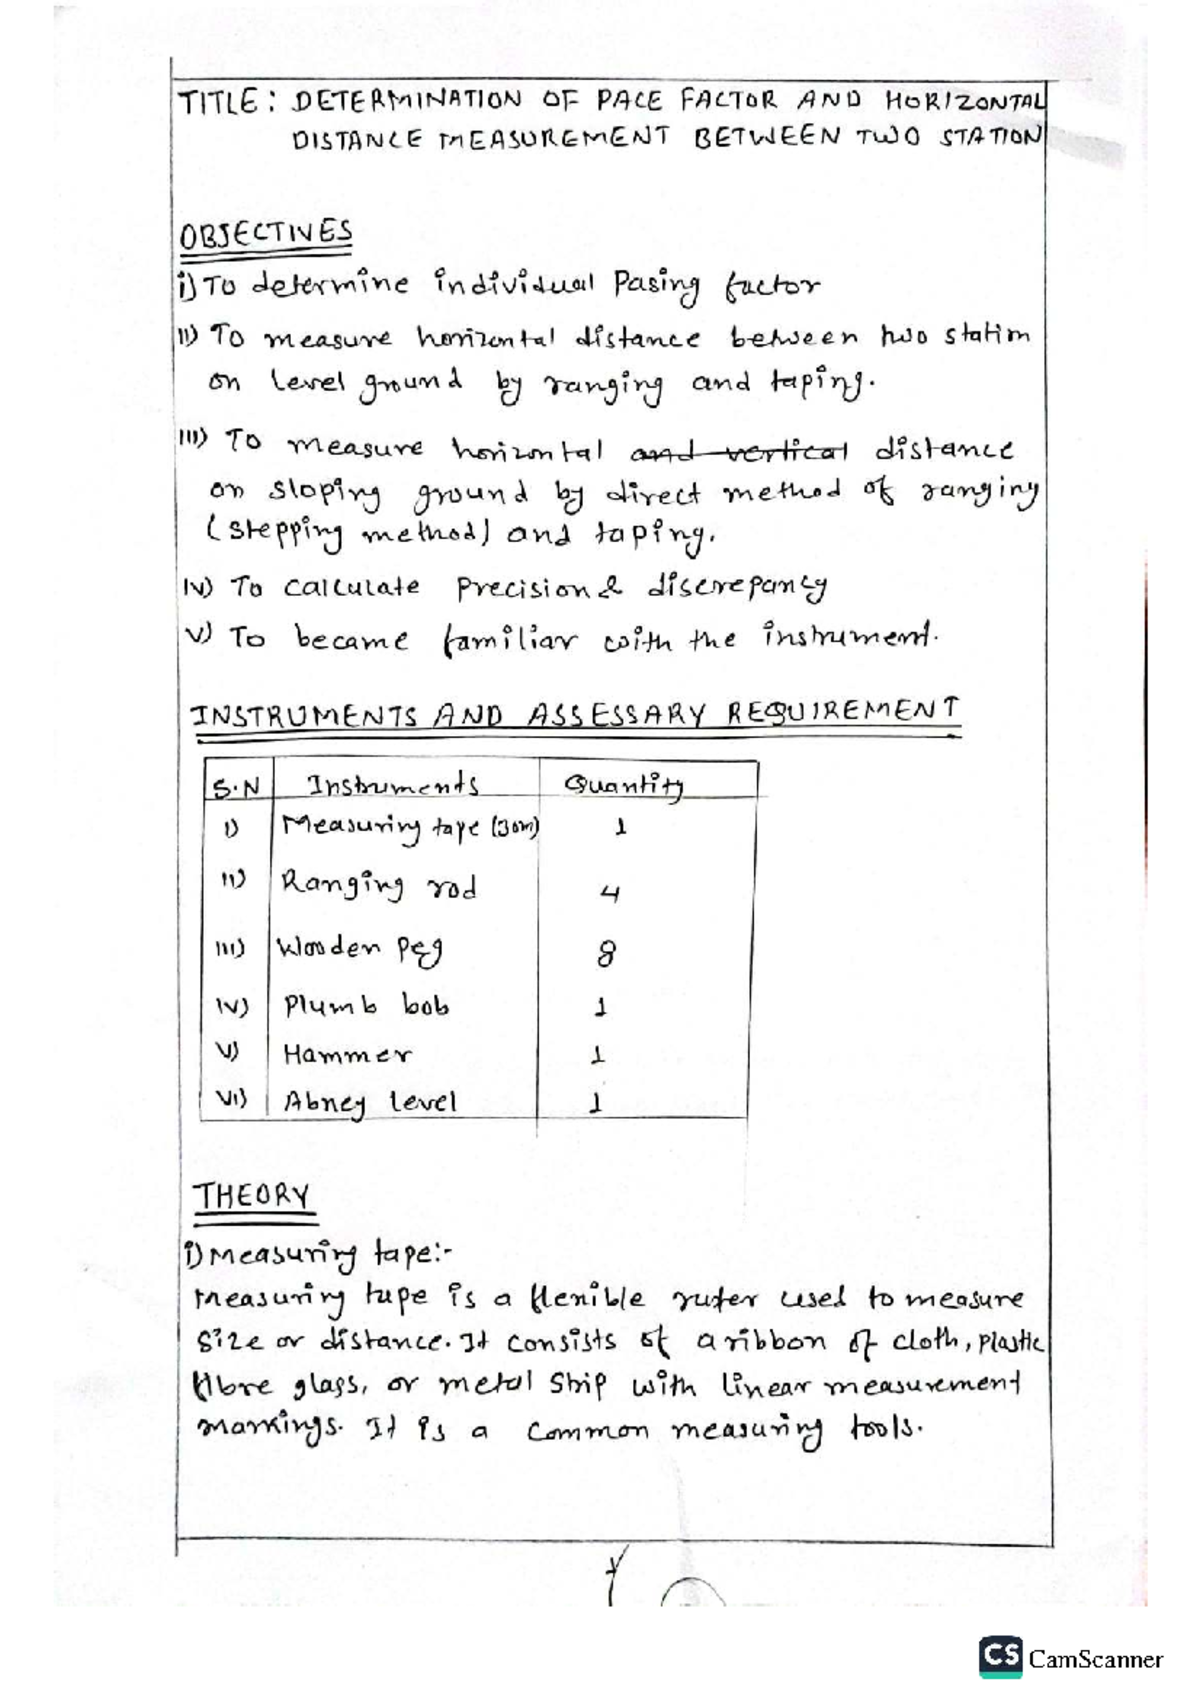 TITLE: DETERMINATION OF PACE FACTOR AND HORIZONTAL
DISTANCE MEASUREMENT BETWEEN TWO STATION
OBJECTIVES
i) To determine individual Pasing factor
ii) To measure horizontal distance between two station
on level ground by ranging and taping.
iii) To measure horizontal and vertical distance
on sloping ground by direct method of ranging
(stepping method) and taping.
iv) To calculate Precision & discrepancy
v) To became familiar with the instrument.
INSTRUMENTS AND ASSESSARY REQUIREMENT
S.N Instruments Quantity
i) Measuring tape (30m) 1
ii) Ranging rod 4
iii) Wooden Peg 8
iv) Plumb bob 1
v) Hammer 1
vi) Abney level 1
THEORY
i) Measuring tape:-
Measuring tape is a flexible ruler used to measure
size or distance. It consists of a ribbon of cloth, plastic
fibre glass, or metal strip with linear measurement
markings. It is a common measuring tools.
CS CamScanner